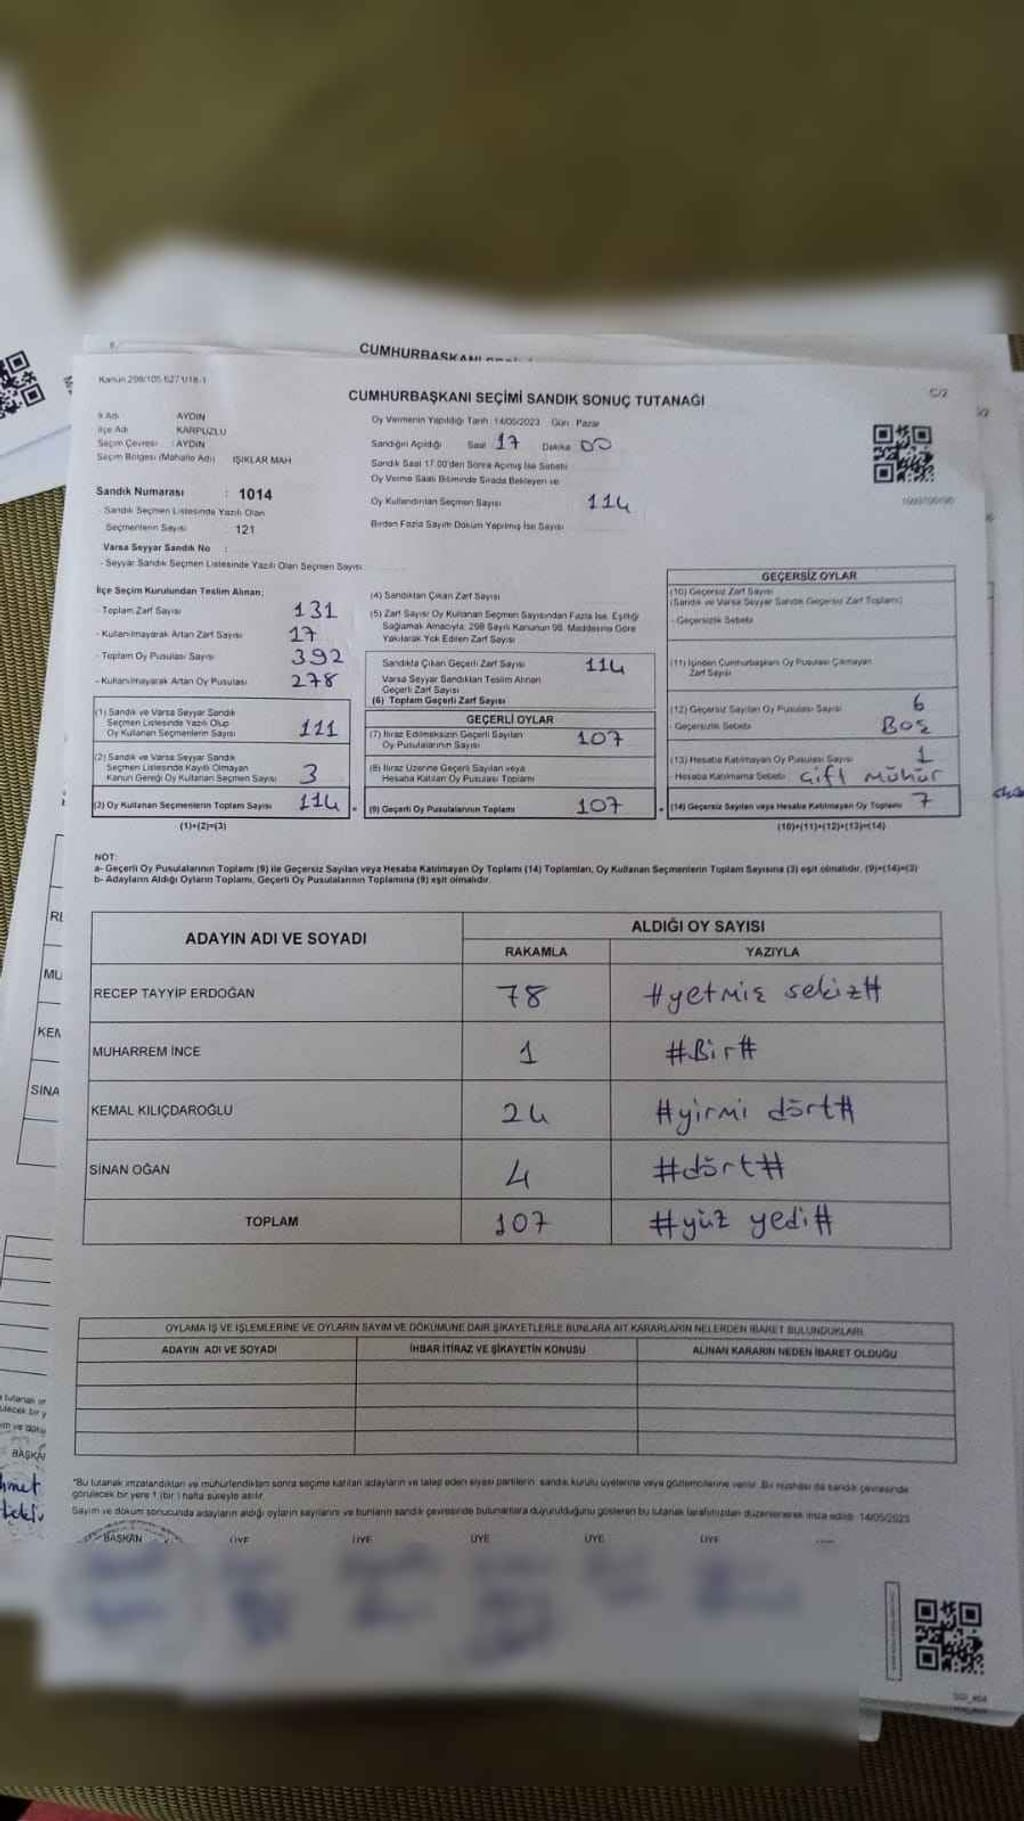 CUMHURBAŞKANI
Kanun 298/105 627 1/18-1
C/2
CUMHURBAŞKANI SEÇİMİ SANDIK SONUÇ TUTANAĞI
İl Adı AYDIN
İlçe Adı KARPUZLU
Seçim Çevresi : AYDIN
Seçim Bölgesi (Mahalle Adı) IŞIKLAR MAH
Sandık Numarası : 1014
- Sandık Seçmen Listesinde Yazılı Olan
Seçmenlerin Sayısı 121
Varsa Seyyar Sandık No :
- Seyyar Sandık Seçmen Listesinde Yazılı Olan Seçmen Sayısı
Oy Vermenin Yapıldığı Tarih 14/05/2023 Gün : Pazar
Sandığın Açıldığı Saat 17 Dakika 00
Sandık Saat 17.00'den Sonra Açılmış İse Sebebi
Oy Verme Saati Bitiminde Sırada Bekleyen ve
Oy Kullandırılan Seçmen Sayısı 114
Birden Fazla Sayım Döküm Yapılmış İse Sayısı
İlçe Seçim Kurulundan Teslim Alınan;
- Toplam Zarf Sayısı 131
- Kullanılmayarak Artan Zarf Sayısı 17
- Toplam Oy Pusulası Sayısı 392
- Kullanılmayarak Artan Oy Pusulası 278
(1) Sandık ve Varsa Seyyar Sandık
Seçmen Listesinde Yazılı Olup
Oy Kullanan Seçmenlerin Sayısı 111
(2) Sandık ve Varsa Seyyar Sandık
Seçmen Listesinde Kayıtlı Olmayan
Kanun Gereği Oy Kullanan Seçmen Sayısı 3
(3) Oy Kullanan Seçmenlerin Toplam Sayısı 114
(1)+(2)=(3)
(4) Sandıktan Çıkan Zarf Sayısı
(5) Zarf Sayısı Oy Kullanan Seçmen Sayısından Fazla İse, Eşitliği
Sağlamak Amacıyla; 298 Sayılı Kanunun 98. Maddesine Göre
Yakılarak Yok Edilen Zarf Sayısı
Sandıkta Çıkan Geçerli Zarf Sayısı 114
Varsa Seyyar Sandıktan Teslim Alınan
Geçerli Zarf Sayısı
(6) Toplam Geçerli Zarf Sayısı
GEÇERLİ OYLAR
(7) İtiraz Edilmeksizin Geçerli Sayılan
Oy Pusulalarının Sayısı 107
(8) İtiraz Üzerine Geçerli Sayılan veya
Hesaba Katılan Oy Pusulası Toplamı
(9) Geçerli Oy Pusulalarının Toplamı 107
GEÇERSİZ OYLAR
(10) Geçersiz Zarf Sayısı
(Sandık ve Varsa Seyyar Sandık Geçersiz Zarf Toplamı)
- Geçersizlik Sebebi
(11) İçinden Cumhurbaşkanı Oy Pusulası Çıkmayan
Zarf Sayısı
(12) Geçersiz Sayılan Oy Pusulası Sayısı 6
- Geçersizlik Sebebi BOŞ
(13) Hesaba Katılmayan Oy Pusulası Sayısı 1
Hesaba Katılmama Sebebi Çift Mühür
(14) Geçersiz Sayılan veya Hesaba Katılmayan Oy Toplamı 7
(10)+(11)+(12)+(13)=(14)
NOT:
a- Geçerli Oy Pusulalarının Toplamı (9) ile Geçersiz Sayılan veya Hesaba Katılmayan Oy Toplamı (14) Toplamları, Oy Kullanan Seçmenlerin Toplam Sayısına (3) eşit olmalıdır. (9)+(14)=(3)
b- Adayların Aldığı Oyların Toplamı, Geçerli Oy Pusulalarının Toplamına (9) eşit olmalıdır.
ADAYIN ADI VE SOYADI
ALDIĞI OY SAYISI
RAKAMLA YAZIYLA
RECEP TAYYİP ERDOĞAN 78 #yetmiş sekiz#
MUHARREM İNCE 1 #Bir#
KEMAL KILIÇDAROĞLU 24 #yirmi dört#
SİNAN OĞAN 4 #dört#
TOPLAM 107 #yüz yedi#
OYLAMA İŞ VE İŞLEMLERİNE VE OYLARIN SAYIM VE DÖKÜMÜNE DAİR ŞİKAYETLERLE BUNLARA AİT KARARLARIN NELERDEN İBARET BULUNDUKLARI
ADAYIN ADI VE SOYADI İHBAR İTİRAZ VE ŞİKAYETİN KONUSU ALINAN KARARIN NEDEN İBARET OLDUĞU
*Bu tutanak imzalandıktan ve mühürlendikten sonra seçime katılan adayların ve talep eden siyasi partilerin sandık kurulu üyelerine veya gözlemcilerine verilir. Bir nüshası da sandık çevresinde
görülecek bir yere 1 (bir) hafta süreyle asılır.
Sayım ve döküm sonucunda adayların aldığı oyların sayılarını ve bunların sandık çevresinde bulunanlara duyurulduğunu gösteren bu tutanak tarafımızdan düzenlenerek imza edildi. 14/05/2023
BAŞKAN ÜYE ÜYE ÜYE ÜYE ÜYE